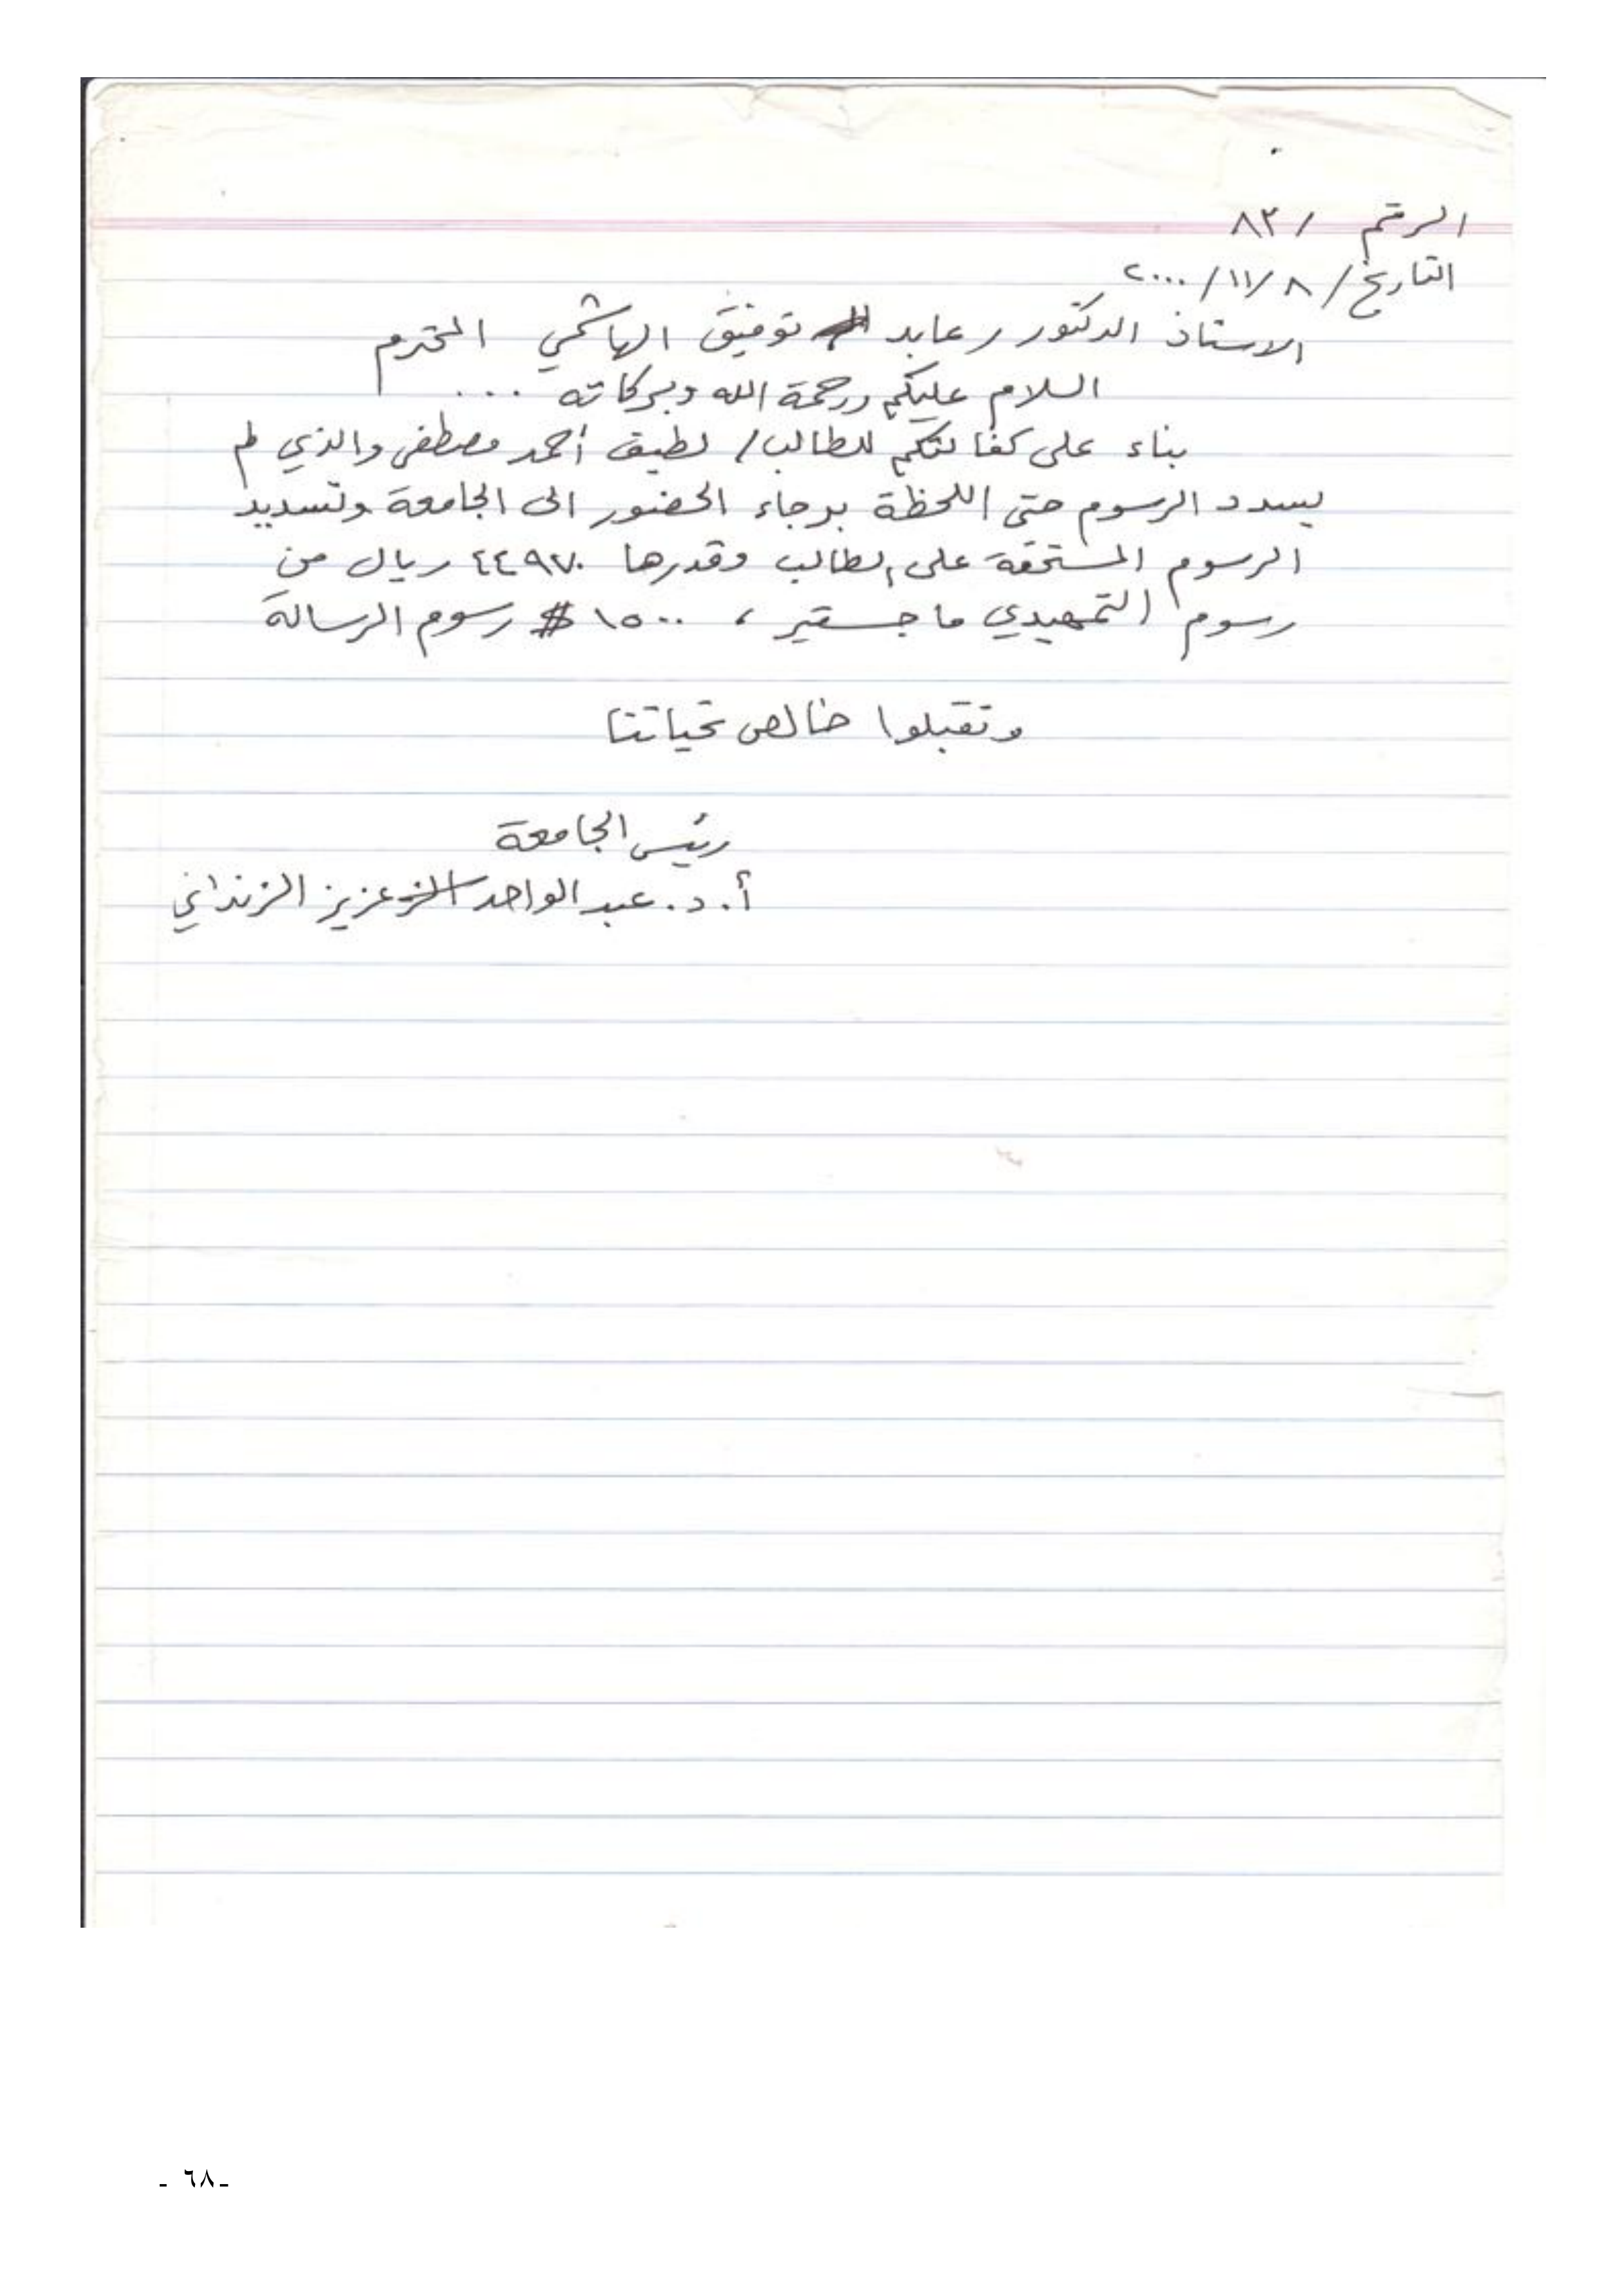 الرقم / ٨٣
التاريخ / ٨ / ١١ / ٢٠٠٠
الاستاذ الدكتور / عابد توفيق الهاشمي المحترم
السلام عليكم ورحمة الله وبركاته ...
بناء على كفالتكم للطالب / لطيف أحمد مصطفى والذي لم
يسدد الرسوم حتى اللحظة برجاء الحضور الى الجامعة وتسديد
الرسوم المستحقة على الطالب وقدرها ٤٤٩٧٠ ريال من
رسوم التمهيدي ماجستير ، ١٥٠٠ $ رسوم الرسالة
وتقبلوا خالص تحياتنا
رئيس الجامعة
أ. د. عبد الواحد عزيز الزنداني
- ٦٨ -